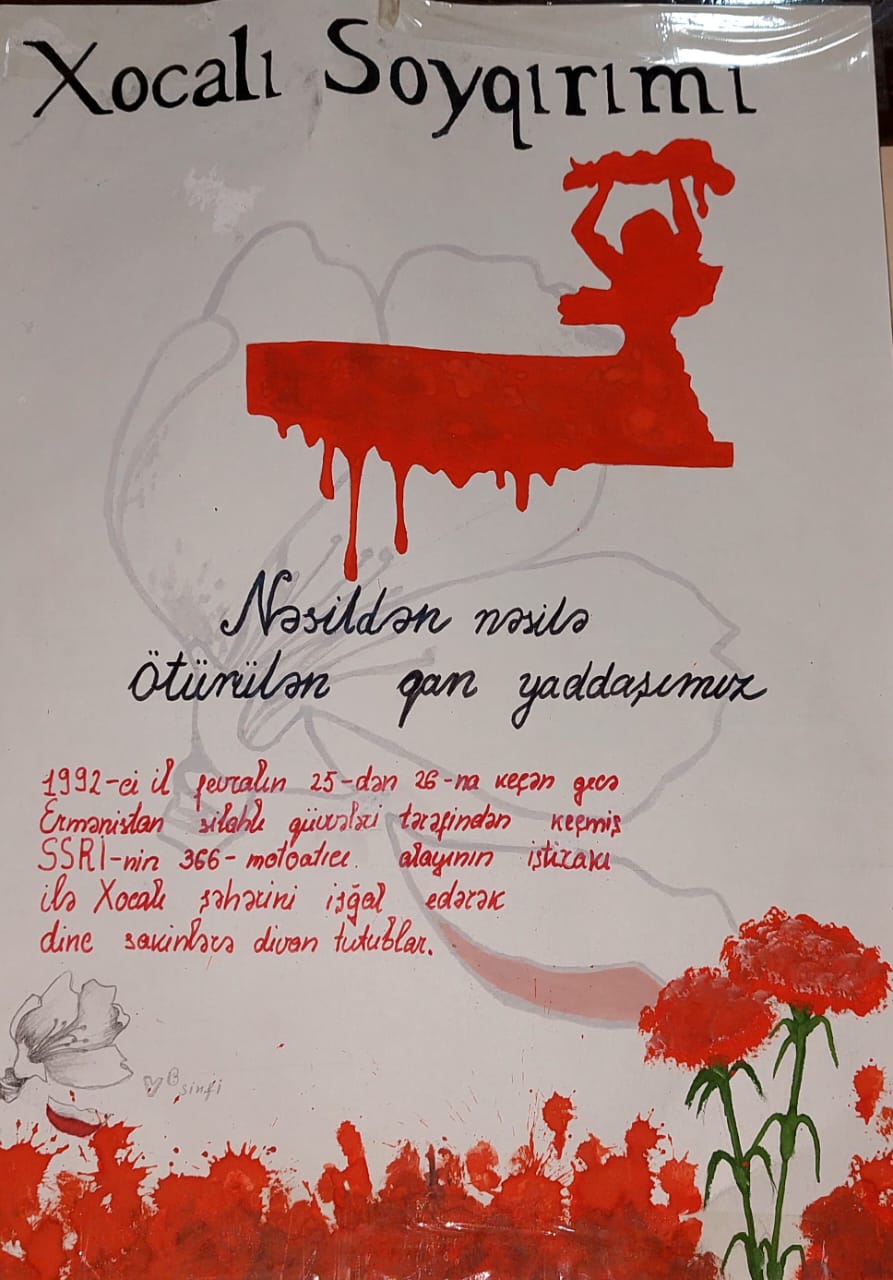 Xocalı Soyqırımı
Nəsildən nəsilə
ötürülən qan yaddaşımız
1992-ci il fevralın 25-dən 26-na keçən gecə
Ermənistan silahlı qüvvələri tərəfindən keçmiş
SSRİ-nin 366-motoatıcı alayının iştirakı
ilə Xocalı şəhərini işğal edərək
dinc sakinlərə divan tutublar.
sinfi